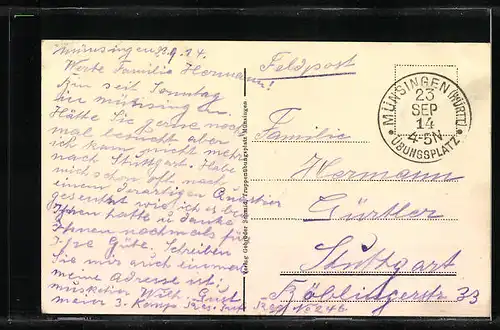 Münsingen 22.9.14.
Werte Familie Hermann!
Bin seit Sonntag
hier in Münsingen.
Hätte Sie gerne noch
mal besucht aber
ich kann nicht mehr
nach Stuttgart. Habe
mich schon oft nach
einem derartigen Quartier
gesehnt wie ich es bei
Ihnen hatte u. danke
Ihnen nochmals für
Ihre Güte. Schreiben
Sie mir auch einmal
meine Adresse ist:
Musketier Wilh.
3. Komp. Res. Inft. Regt. No 246
Verlag Gebrüder Schmid, Truppenübungsplatz Münsingen
Feldpost
MÜNSINGEN (WÜRTT.)
23
SEP
14
4-5N
* ÜBUNGSPLATZ *
Familie
Hermann
Gürtler
Stuttgart
33